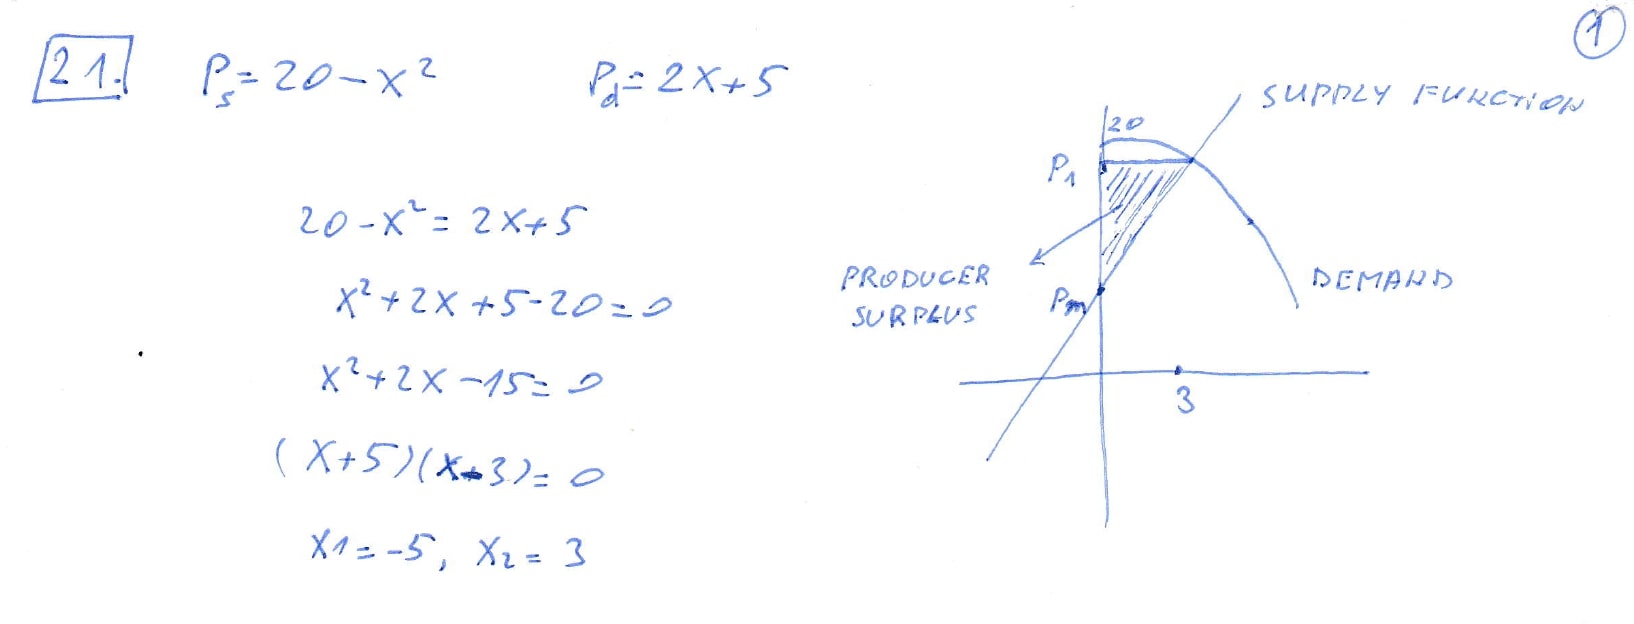 1
21. Ps = 20 - x² Pd = 2x + 5
20 - x² = 2x + 5
x² + 2x + 5 - 20 = 0
x² + 2x - 15 = 0
(x + 5)(x - 3) = 0
x1 = -5, x2 = 3
SUPPLY FUNCTION
20
P1
PRODUCER
SURPLUS
Pm
DEMAND
3